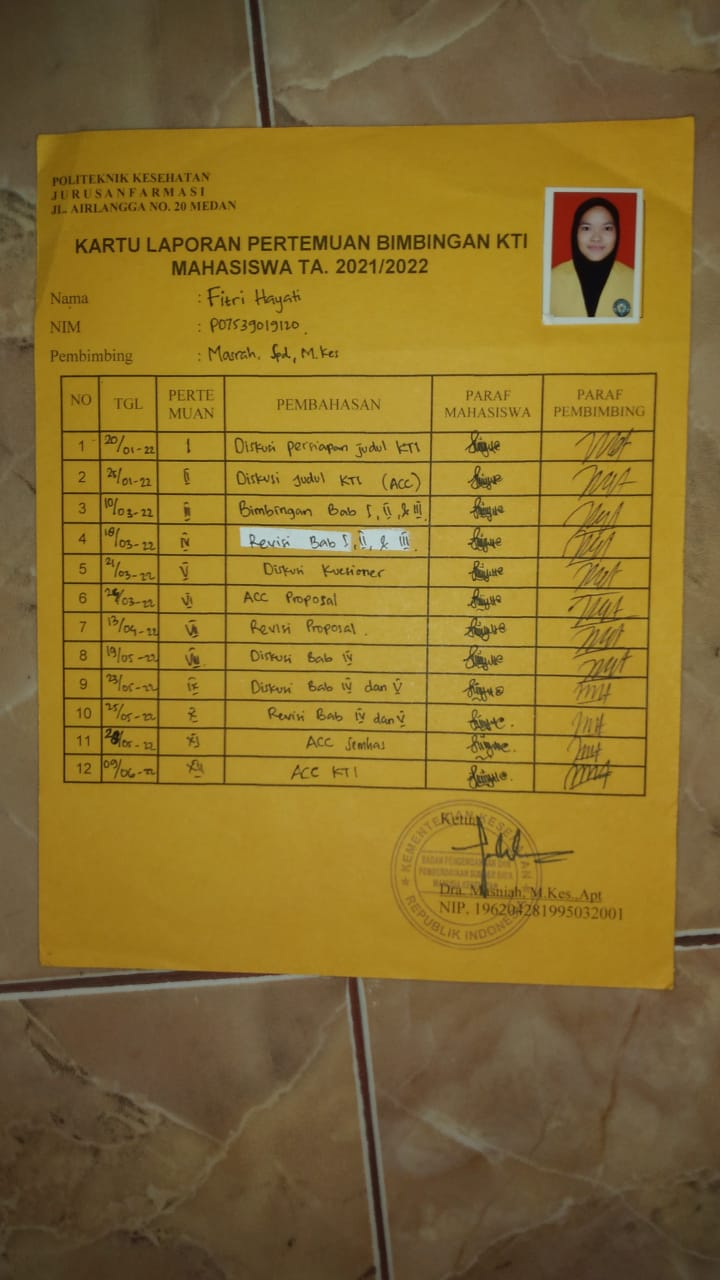 POLITEKNIK KESEHATAN
JURUSANFARMASI
JL. AIRLANGGA NO. 20 MEDAN
KARTU LAPORAN PERTEMUAN BIMBINGAN KTI
MAHASISWA TA. 2021/2022
Nama : Fitri Hayati
NIM : P07539019120
Pembimbing : Masrah, Spd, M.Kes
NO TGL PERTE MUAN PEMBAHASAN PARAF MAHASISWA PARAF PEMBIMBING
1 20/01-22 I Diskusi persiapan judul KTI
2 25/01-22 II Diskusi judul KTI (ACC)
3 10/03-22 III Bimbingan Bab I, II, & III
4 18/03-22 IV Revisi Bab I, II, & III
5 21/03-22 V Diskusi Kuesioner
6 /03-22 VI ACC Proposal
7 13/04-22 VII Revisi Proposal.
8 19/05-22 VIII Diskusi Bab IV
9 23/05-22 IX Diskusi Bab IV dan V
10 25/05-22 X Revisi Bab IV dan V
11 /05-22 XI ACC Semhas
12 09/06-22 XII ACC KTI
Ketua
KEMENTERIAN KESEHATAN
REPUBLIK INDONESIA
Dra. Masniah, M.Kes.,Apt
NIP. 196204281995032001